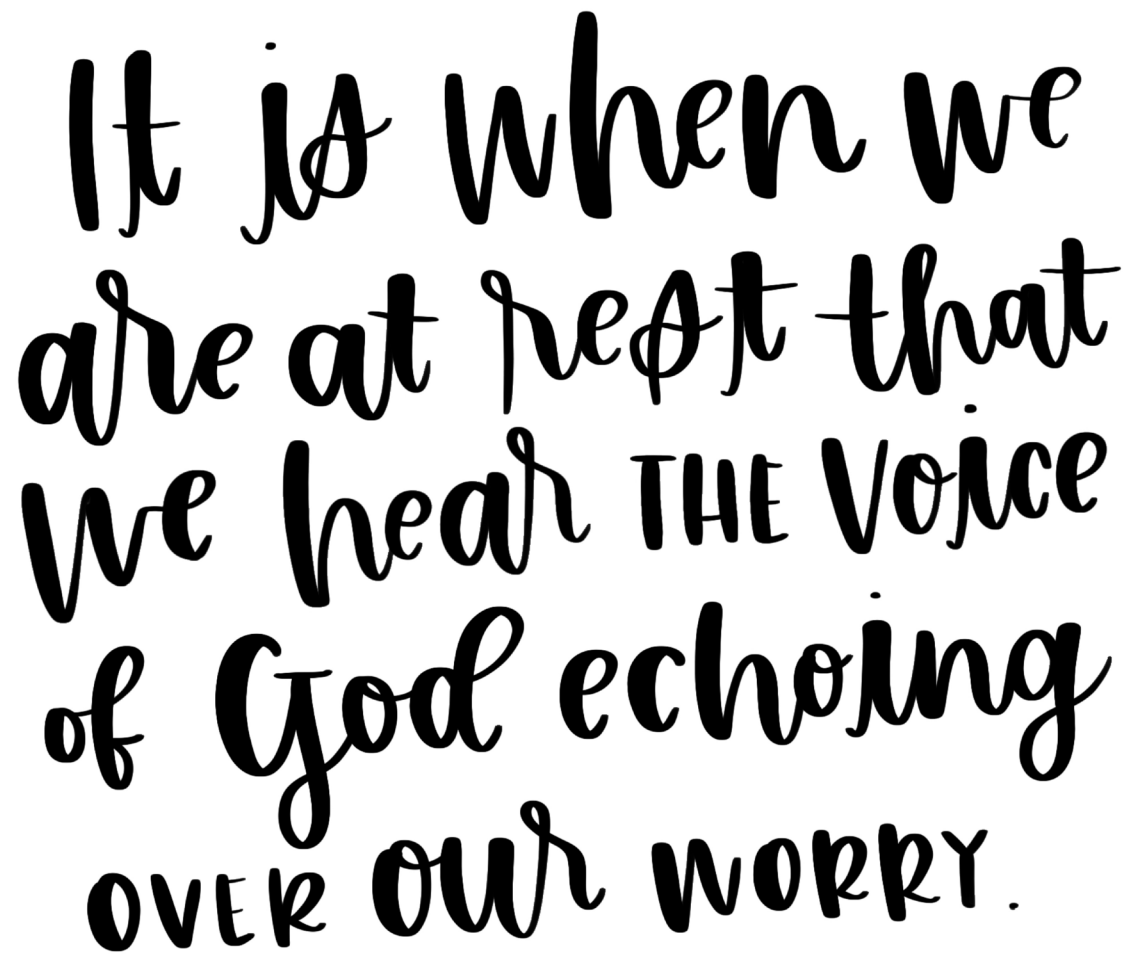 It is when we
are at rest that
we hear THE VOICE
of God echoing
OVER our WORRY.